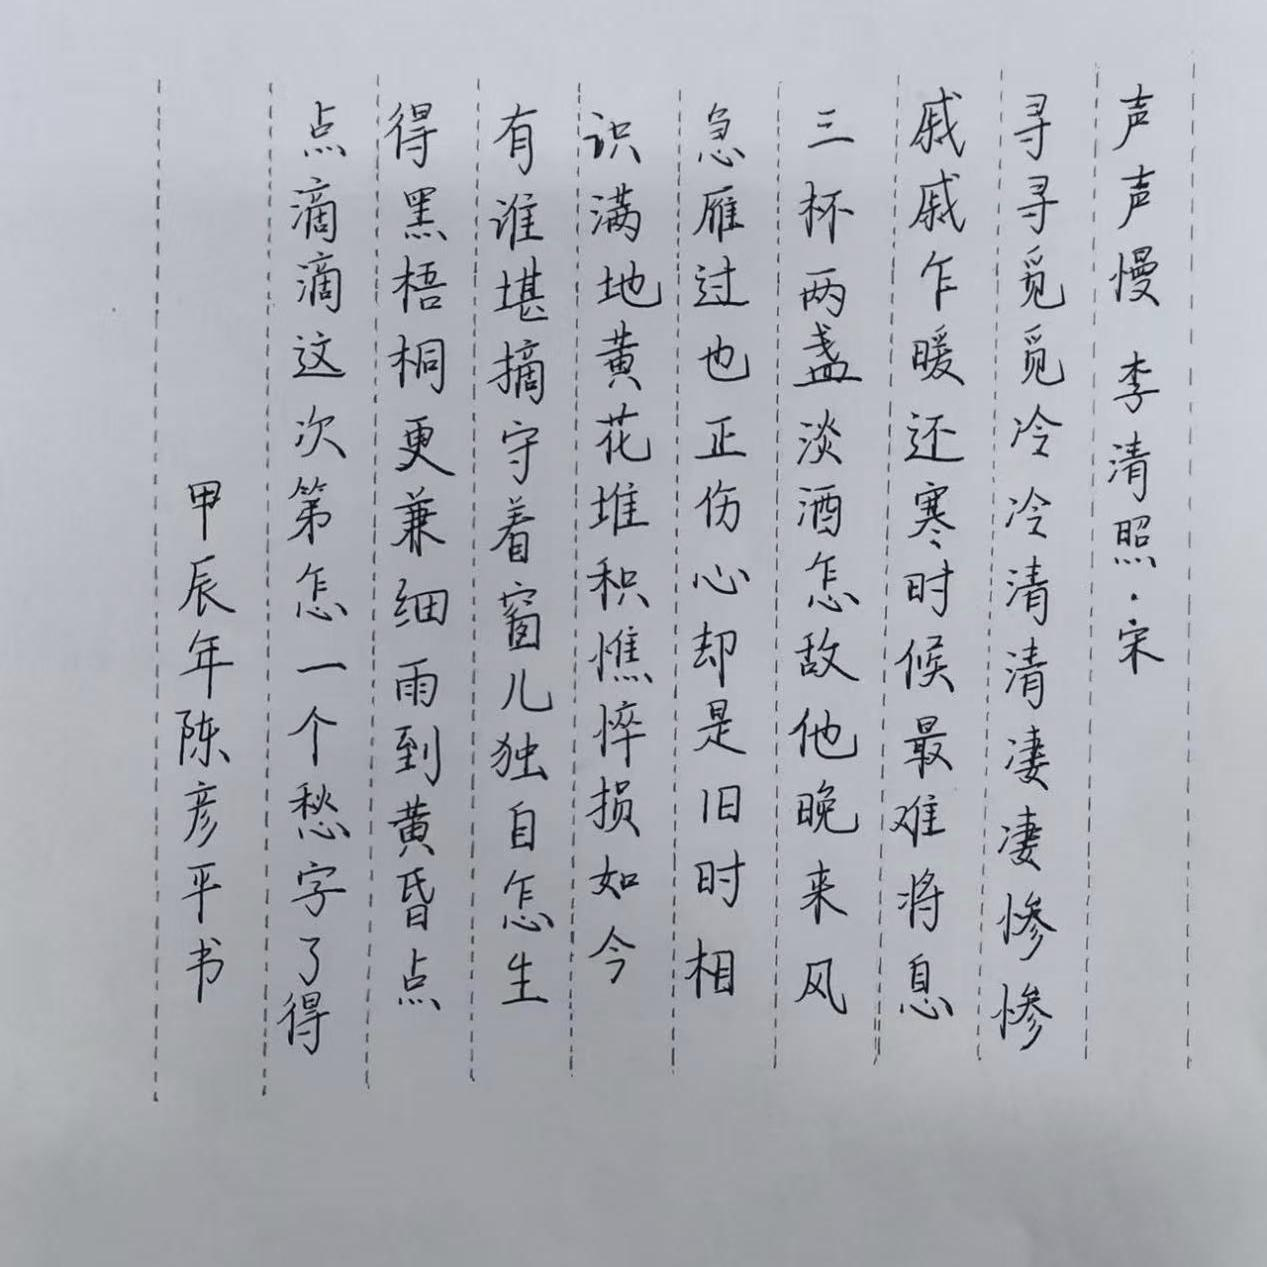 声声慢 李清照·宋
寻寻觅觅冷冷清清凄凄惨惨
戚戚乍暖还寒时候最难将息
三杯两盏淡酒怎敌他晚来风
急雁过也正伤心却是旧时相
识满地黄花堆积憔悴损如今
有谁堪摘守着窗儿独自怎生
得黑梧桐更兼细雨到黄昏点
点滴滴这次第怎一个愁字了得
甲辰年陈彦平书